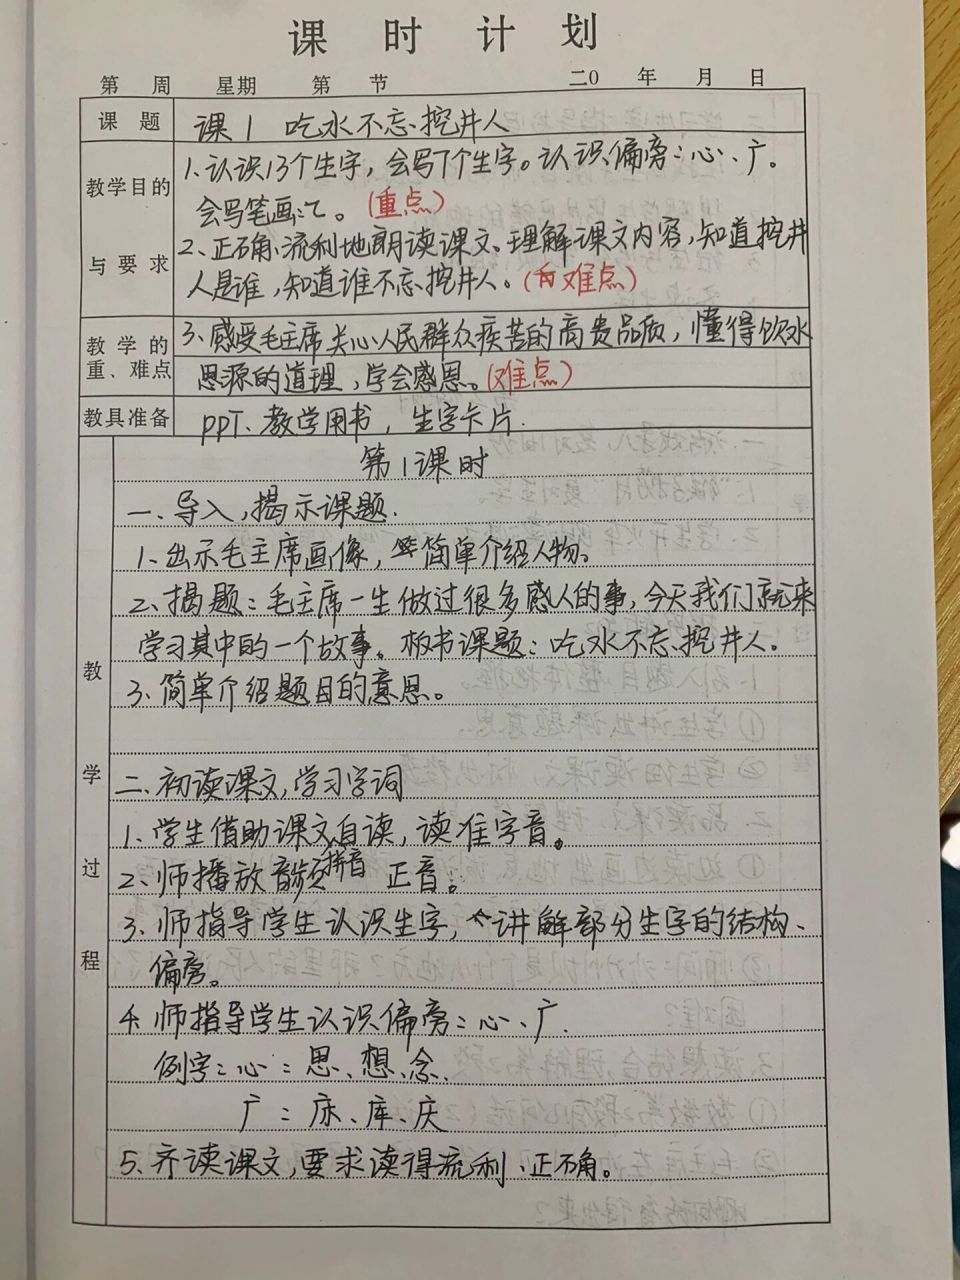 课 时 计 划
第 周 星期 第 节 二0 年 月 日
课 题
课1 吃水不忘挖井人
教学目的
与 要 求
1、认识13个生字，会写7个生字。认识偏旁：心、广。
会写笔画：㇈。(重点)
2、正确、流利地朗读课文、理解课文内容，知道挖井
人是谁，知道谁不忘挖井人。(难点)
教 学 的
重、难点
3、感受毛主席关心人民群众疾苦的高贵品质，懂得饮水
思源的道理，学会感恩。(难点)
教具准备
PPT、教学用书，生字卡片.
教 学 过 程
第1课时
一、导入，揭示课题.
1、出示毛主席画像，简单介绍人物。
2、揭题：毛主席一生做过很多感人的事，今天我们就来
学习其中的一个故事。板书课题：吃水不忘挖井人。
3、简单介绍题目的意思。
二、初读课文，学习字词
1、学生借助课文自读，读准字音。
2、师播放音频 拼音 正音。
3、师指导学生认识生字，讲解部分生字的结构、
偏旁。
4、师指导学生认识偏旁：心、广.
例字：心：思、想、念、
广：床、库、庆
5、齐读课文，要求读得流利、正确。